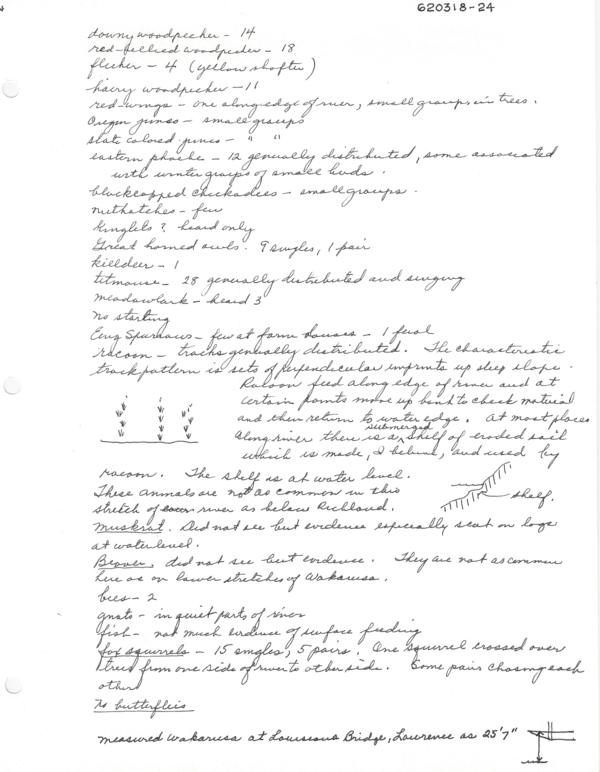 620318-24
downy woodpecker - 14
red-bellied woodpecker - 18
flicker - 4 (yellow shafter)
hairy woodpecker - 11
red-wings - one along edge of river, small groups in trees.
Oregon juncos - small groups
slate colored juncos - " "
eastern phoebe - 12 generally distributed, some associated
with winter groups of small birds.
blackcapped chickadees - small groups.
nuthatches - few
kinglets? heard only
Great horned owls. 9 singles, 1 pair
killdeer - 1
titmouse - 28 generally distributed and singing
meadowlark - heard 3
no starling
Eng Sparrows - few at farm houses - 1 feral
racoon - tracks generally distributed. The characteristic
track pattern is sets of perpendicular imprints up steep slope.
Racoon feed along edge of river and at
certain points move up bank to check material
and then return to water edge. At most places
along river there is a submerged shelf of eroded soil
which is made, I believe, and used by
racoon. The shelf is at water level.
shelf.
These animals are not as common in this
stretch of river as below Richland.
Muskrat. Did not see but evidence especially scat on logs
at water level.
Beaver. did not see but evidence. They are not as common
here as on lower stretches of Wakarusa.
bees - 2
gnats - in quiet parts of river
fish - not much evidence of surface feeding
fox squirrels - 15 singles, 5 pairs. One squirrel crossed over
trees from one side of river to other side. Some pairs chasing each
other
No butterflies
Measured Wakarusa at Louisiana Bridge, Lawrence as 25'7"